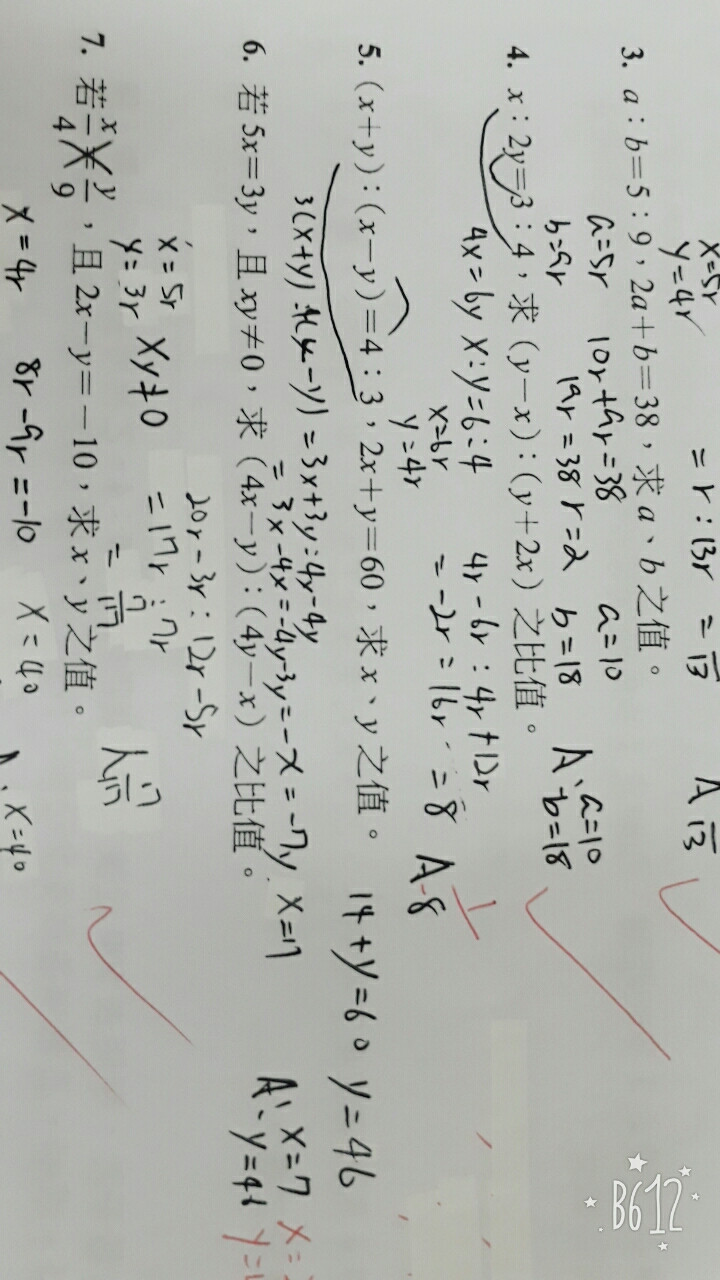 x=5r
y=4r
=r:13r=
13
A 13
3. a:b=5:9，2a+b=38，求a、b之值。
a=5r 10r+9r=38 a=10
b=9r 19r=38 r=2 b=18
A、a=10
b=18
4. x:2y=3:4，求(y-x):(y+2x)之比值。
4x=6y x:y=6:4 4r-6r:4r+12r
x=6r
y=4r
=-2r=16r=8 A-8
5. (x+y):(x-y)=4:3，2x+y=60，求x、y之值。
14+y=60 y=46
3(x+y):4(x-y)=3x+3y:4x-4y
=3x-4x=-4y-3y=-x=-7y x=7
A、x=7
y=46
x=
y=
6. 若5x=3y，且xy≠0，求(4x-y):(4y-x)之比值。
x=5r
y=3r xy≠0
20r-3r:12r-5r
=17r:7r
=7/17
7/17
7. 若x/4=y/9，且2x-y=-10，求x、y之值。
x=4r 8r-9r=-10 x=40
x=40
B612